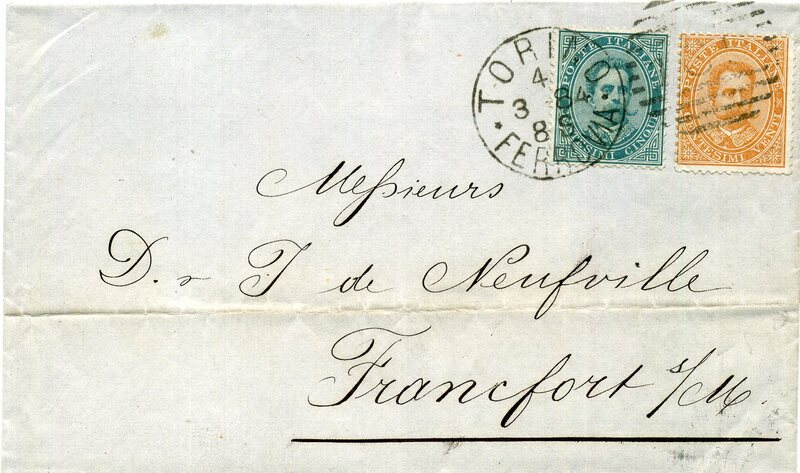 TORINO
4
3 84
8 S
* FERROVIA *
POSTE ITALIANE
CENTESIMI CINQUE
POSTE ITALIANE
CENTESIMI VENTI
Meſsieurs
D. & J de Neufville
Francfort s/M.